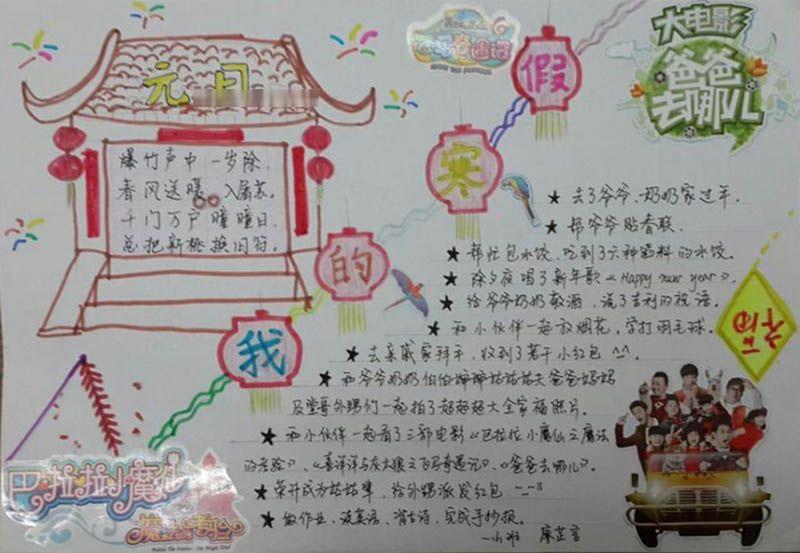 元日
爆竹声中一岁除,
春风送暖入屠苏。
千门万户曈曈日,
总把新桃换旧符。
我的寒假
大电影
爸爸去哪儿
福
★ 去了爷爷、奶奶家过年。
★ 帮爷爷贴春联。
★ 帮忙包水饺,吃到了六种馅料的水饺。
★ 除夕夜唱了新年歌《Happy new year》。
★ 给爷爷奶奶敬酒,说了吉利的祝语。
★ 和小伙伴一起放烟花,学打羽毛球。
★ 去亲戚家拜年,收到了若干小红包 ^_^。
★ 和爷爷奶奶伯伯婶婶姑姑姑夫爸爸妈妈
及堂哥外甥们一起拍了超超超大全家福照片。
★ 和小伙伴一起看了三部电影《巴拉拉小魔仙之魔法
的考验》、《喜洋洋与灰太狼之飞马奇遇记》、《爸爸去哪儿》。
★ 荣升成为姑姑辈,给外甥派发红包
★ 做作业、读英语、背古诗、完成手抄报。
巴拉拉小魔仙
魔法的考验